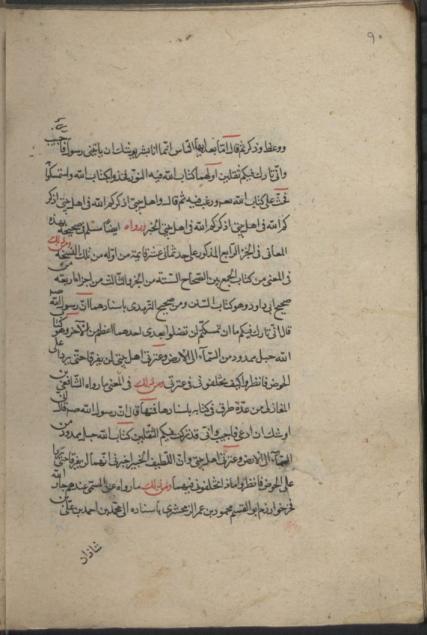 ٩٠
ووعظ وذكر ثم قال اما بعد ايها الناس انما انا بشر يوشك ان ياتيني رسول ربي فاجيب
واني تارك فيكم ثقلين اولهما كتاب الله فيه النور فخذوا بكتاب الله واستمسكوا
فحث على كتاب الله ورغب فيه ثم قال واهل بيتي اذكركم الله في اهل بيتي اذكر
كم الله في اهل بيتي اذكركم الله في اهل بيتي الخبر ورواه ايضا مسلم في صحيحه بهذه
المعاني في الجزء الرابع المذكور على حد ثماني عشر قايمة من اوله من تلك النسخة ومن ذلك
في المعنى من كتاب الجمع بين الصحاح الستة من الجزء الثالث من اجزاء اربعة من
صحيح ابي داود وهو كتاب السنن ومن صحيح الترمذي باسنادهما ان رسول الله
قال اني تارك فيكم ما ان تمسكتم لن تضلوا بعدي احدهما اعظم من الاخر وهو كتاب
الله حبل ممدود من السماء الى الارض وعترتي اهل بيتي لن يفترقا حتى يردا على
الحوض فانظروا كيف تخلفوني في عترتي ومن ذلك في المعنى ما رواه الشافعي بن
المغازلي من عدة طرق في كتابه باسنادها فمنها قال ان رسول الله قال اني
اوشك ان ادعى فاجيب واني قد تركت فيكم الثقلين كتاب الله حبل ممدود من
السماء الى الارض وعترتي اهل بيتي وان اللطيف الخبير اخبرني انهما لن يفترقا حتى يردا
على الحوض فانظروا ماذا تخلفوني فيهما ومن ذلك ما رواه عن المسمى عندهم جار الله
فخر خوارزم ابو القسم محمود بن عمر الزمخشري باسناده الى محمد بن احمد بن علي بن
شاذان